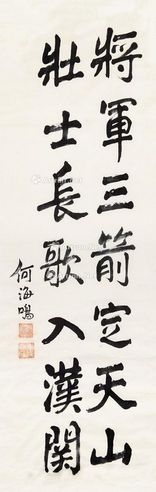 將軍三箭定天山
壯士長歌入漢關
何海鳴